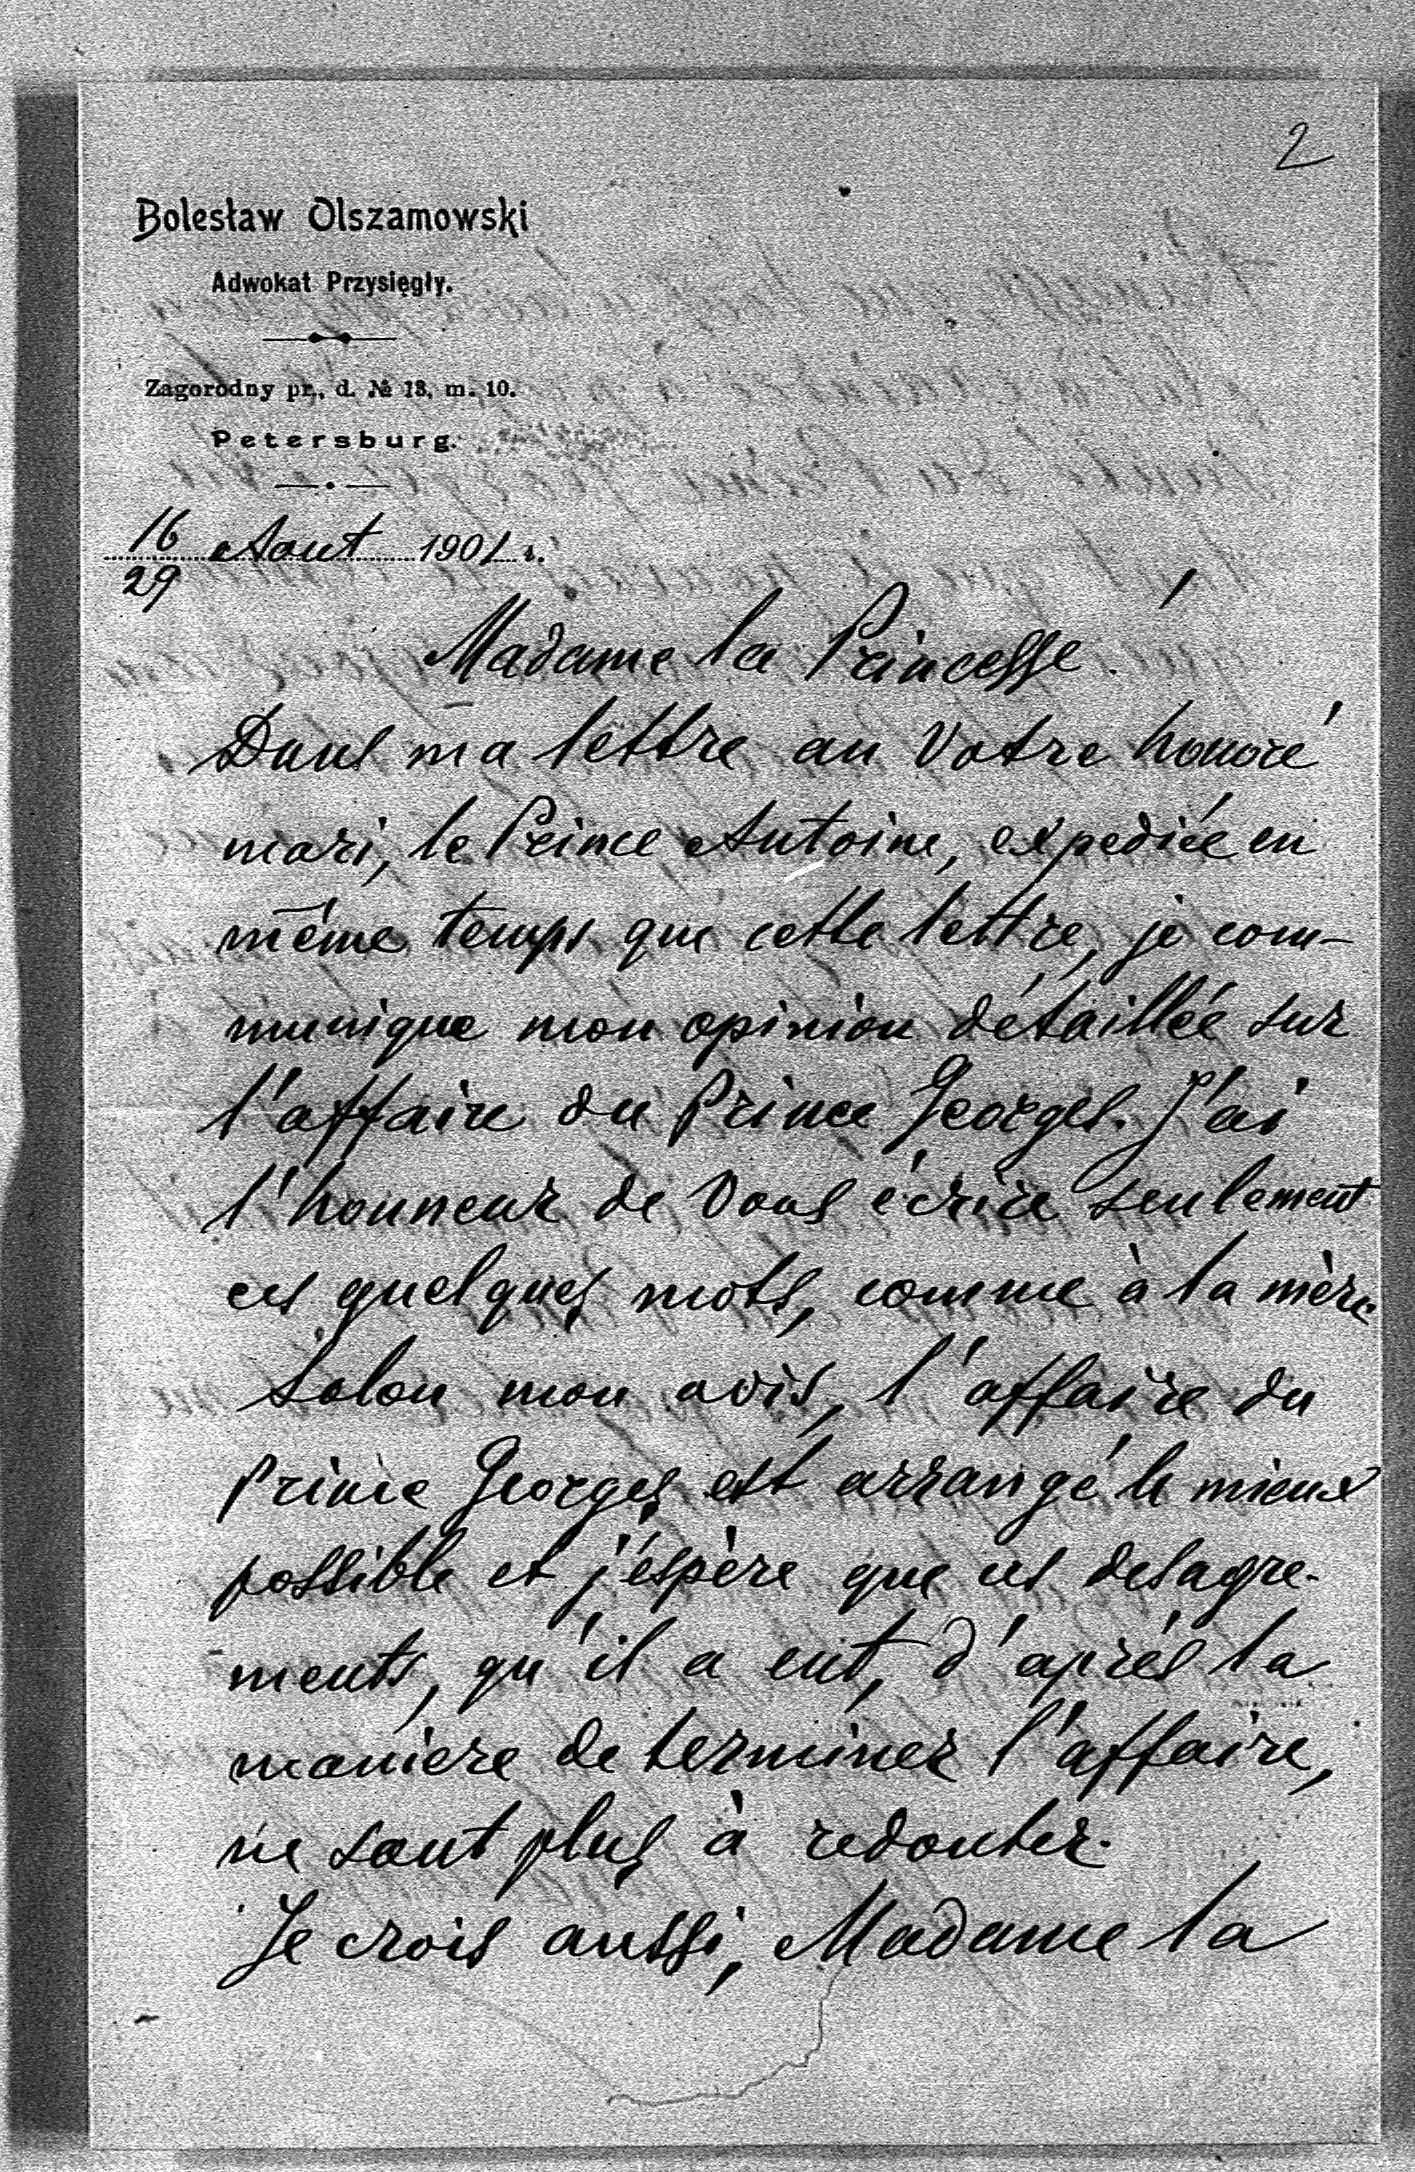 2
Bolesław Olszamowski
Adwokat Przysięgły.
Zagorodny pr., d. № 18, m. 10.
Petersburg.
16 Aout 1901 r.
29
Madame la Princesse!
Dans ma lettre au Votre honoré
mari, le Prince Antoine, expediée en
même temps que cette lettre, je com-
munique mon opinion détaillée sur
l'affaire du Prince Georges. J'ai
l'honneur de Vous écrire seulement
ces quelques mots, comme à la mère.
Solon mon avis, l'affaire du
Prince Georges est arrangé le mieux
possible et j'éspère que ces desagre-
ments, qu'il a eut, d'après la
maniere de terminer l'affaire,
ne sont plus à redouter.
Je crois aussi, Madame la